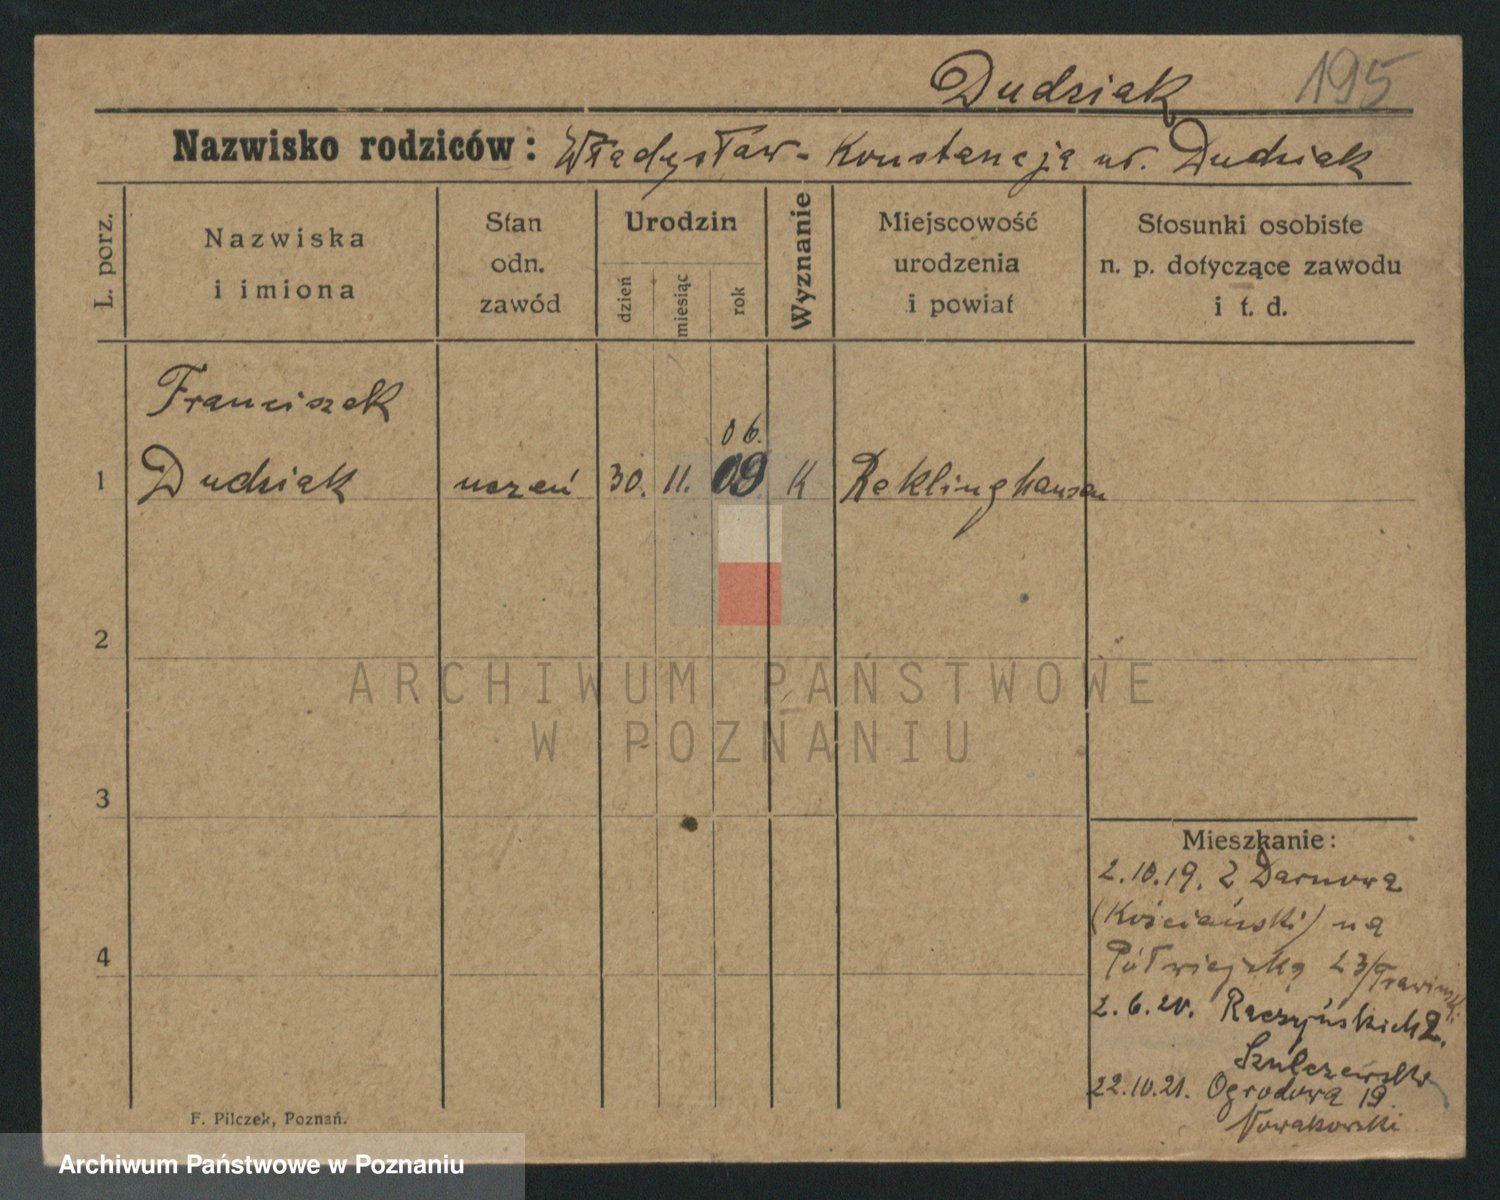 Dudziak 195
Nazwisko rodziców: Władysław - Konstancja ur. Dudziak
L. porz.
Nazwiska
i imiona
Stan
odn.
zawód
Urodzin
dzień
miesiąc
rok
Wyznanie
Miejscowość
urodzenia
i powiat
Stosunki osobiste
n. p. dotyczące zawodu
i t. d.
Franciszek
06.
1 Dudziak uczeń 30. 11. 09 K Reklinghausen
2
3
4
Mieszkanie:
2.10.19. Z Darnowa
(Kościański) na
Półwiejską 23/
2.6.20. Raczyńskich 2.
Szulczewski
22.10.21. Ogrodowa 19
Nowakowski
F. Pilczek, Poznań.
ARCHIWUM PAŃSTWOWE
W POZNANIU
Archiwum Państwowe w Poznaniu